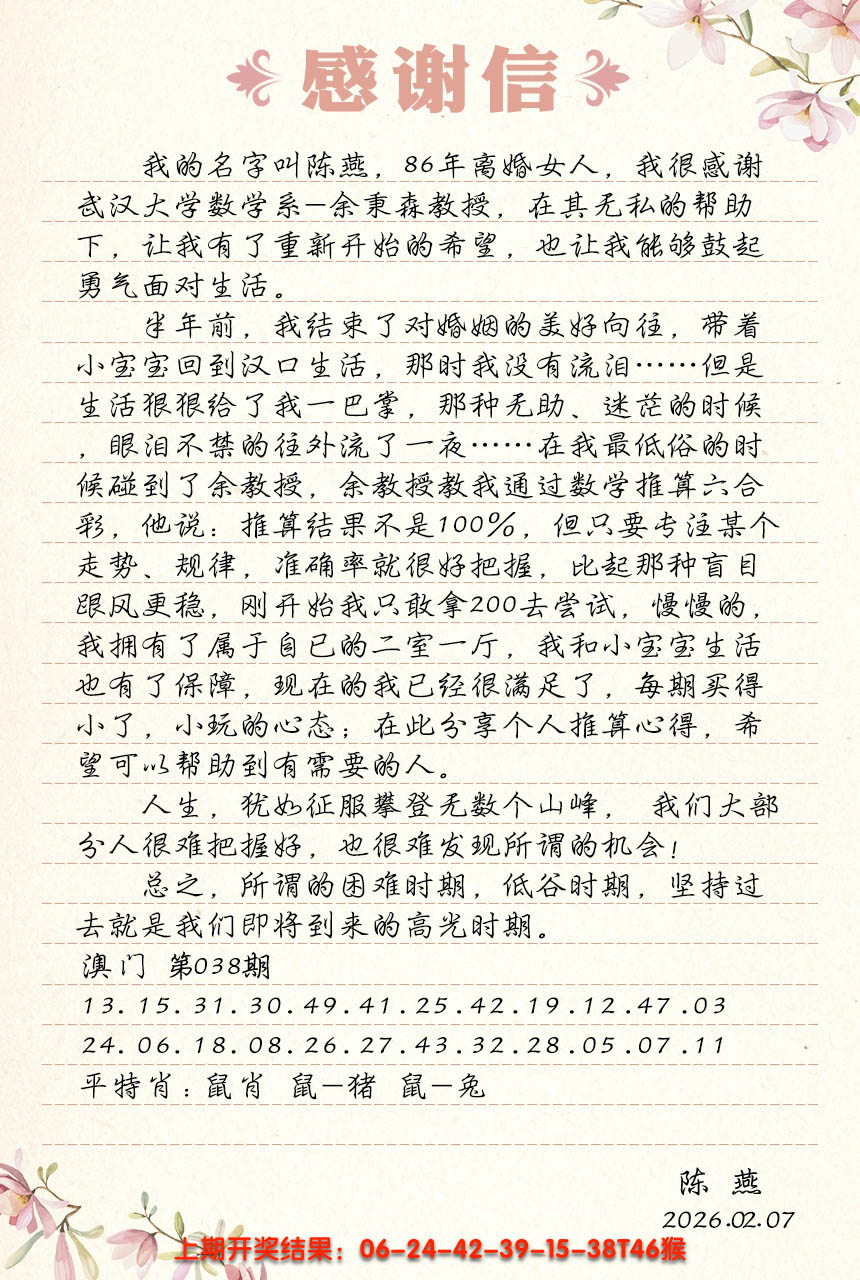 感谢信
我的名字叫陈燕，86年离婚女人，我很感谢
武汉大学数学系－余秉森教授，在其无私的帮助
下，让我有了重新开始的希望，也让我能够鼓起
勇气面对生活。
半年前，我结束了对婚姻的美好向往，带着
小宝宝回到汉口生活，那时我没有流泪……但是
生活狠狠给了我一巴掌，那种无助、迷茫的时候
，眼泪不禁的往外流了一夜……在我最低俗的时
候碰到了余教授，余教授教我通过数学推算六合
彩，他说：推算结果不是100%，但只要专注某个
走势、规律，准确率就很好把握，比起那种盲目
跟风更稳，刚开始我只敢拿200去尝试，慢慢的，
我拥有了属于自已的二室一厅，我和小宝宝生活
也有了保障，现在的我已经很满足了，每期买得
小了，小玩的心态；在此分享个人推算心得，希
望可以帮助到有需要的人。
人生，犹如征服攀登无数个山峰， 我们大部
分人很难把握好，也很难发现所谓的机会！
总之，所谓的困难时期，低谷时期，坚持过
去就是我们即将到来的高光时期。
澳门 第038期
13.15.31.30.49.41.25.42.19.12.47.03
24.06.18.08.26.27.43.32.28.05.07.11
平特肖：鼠肖 鼠－猪 鼠－兔
陈 燕
2026.02.07
上期开奖结果：06-24-42-39-15-38T46猴